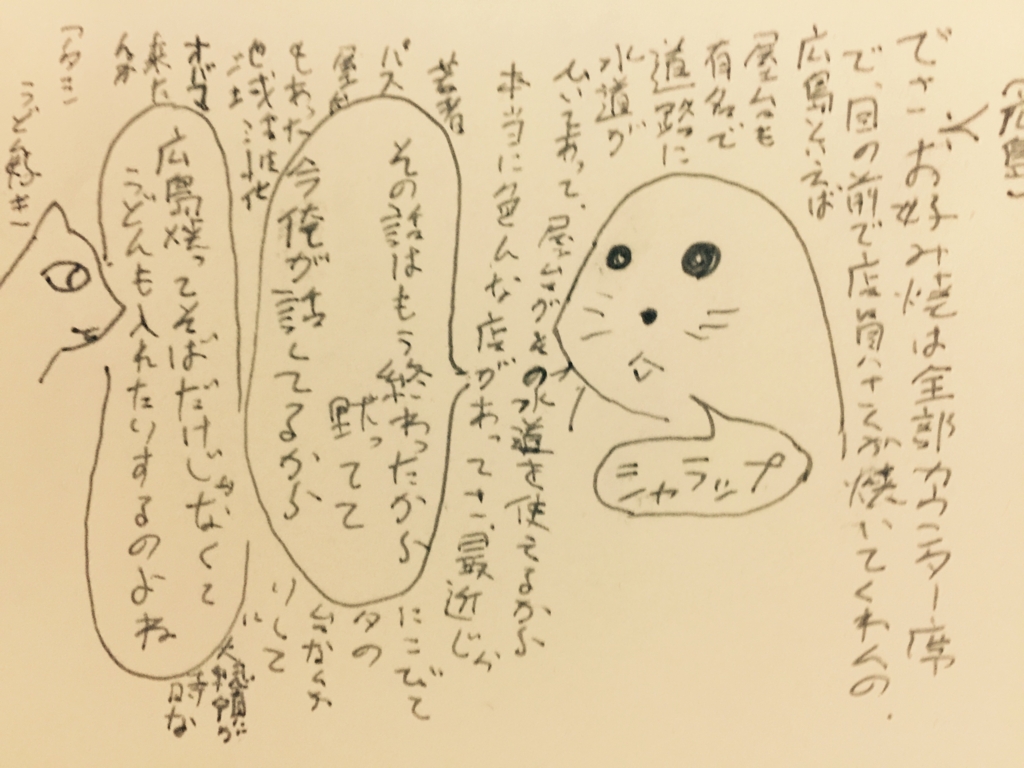 （広島）
でさ、お好み焼は全部カウンター席
で、目の前で店員サンが焼いてくれんの。
広島といえば
屋台も
有名で
道路に
水道が
ひいてあって、屋台がその水道を使えるから
本当に色んな店があってさ、最近じゃ
若者
にこびて
パス
タの
屋
台なんか
もあった
りして
地域活性化
オバマ
大統領が
来た
時な
んか
シャラップ
その話はもう終わったから
黙ってて
今俺が話してるから
広島焼ってそばだけじゃなくて
うどんも入れたりするのよね
うどん好き